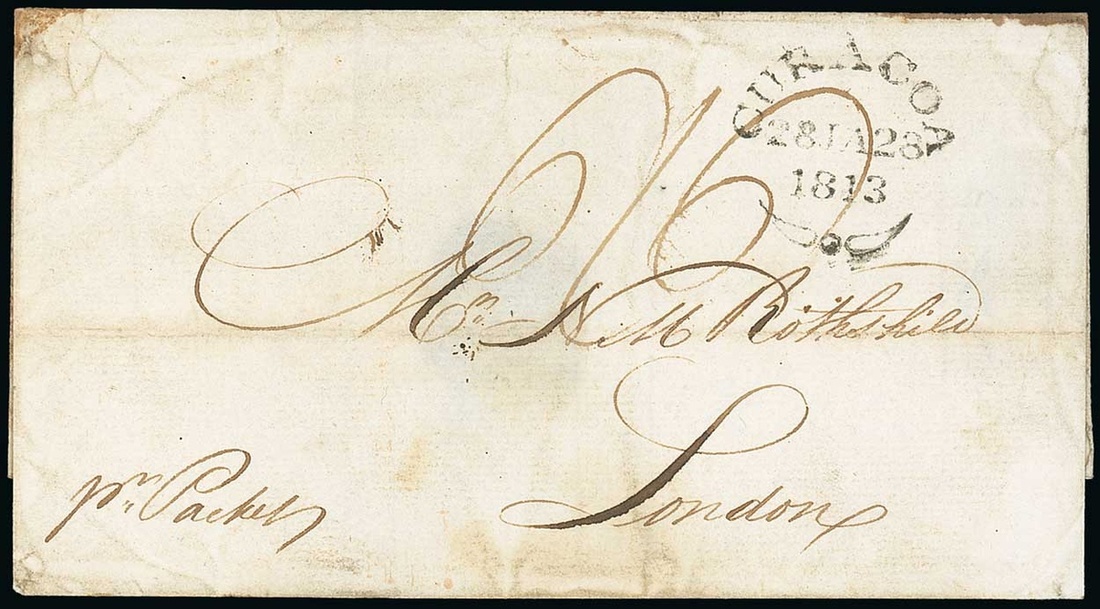 CURACOA
28JA28
1813
2/2
Mr. N M Rothschild
London
pr. Packet